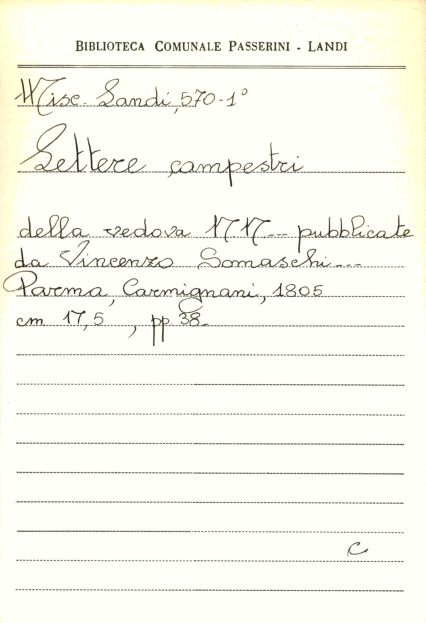 BIBLIOTECA COMUNALE PASSERINI - LANDI
Misc. Landi, 570-1°
Lettere campestri
della vedova N N ... pubblicate
da Vincenzo Somaschi ...
Parma, Carmignani, 1805
cm 17,5 , pp. 38.
C